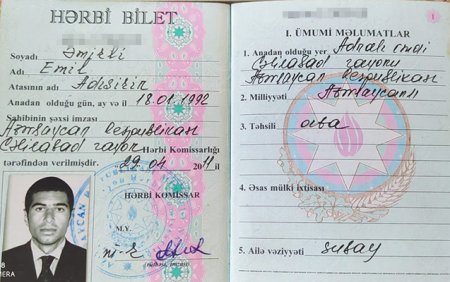 HƏRBİ BİLET
Soyadı Əmirli
Adı Emil
Atasının adı
Anadan olduğu gün, ay və il 18.01.1992
Sahibinin şəxsi imzası
Azərbaycan Respublikası
Cəlilabad rayon Hərbi Komissarlığı
tərəfindən verilmişdir. 29 04 2011 il
HƏRBİ KOMİSSAR
M.Y.
I. ÜMUMİ MƏLUMATLAR
1
1. Anadan olduğu yer
Cəlilabad rayonu
Azərbaycan Respublikası
2. Milliyyəti Azərbaycanlı
3. Təhsili orta
4. Əsas mülki ixtisası
5. Ailə vəziyyəti subay